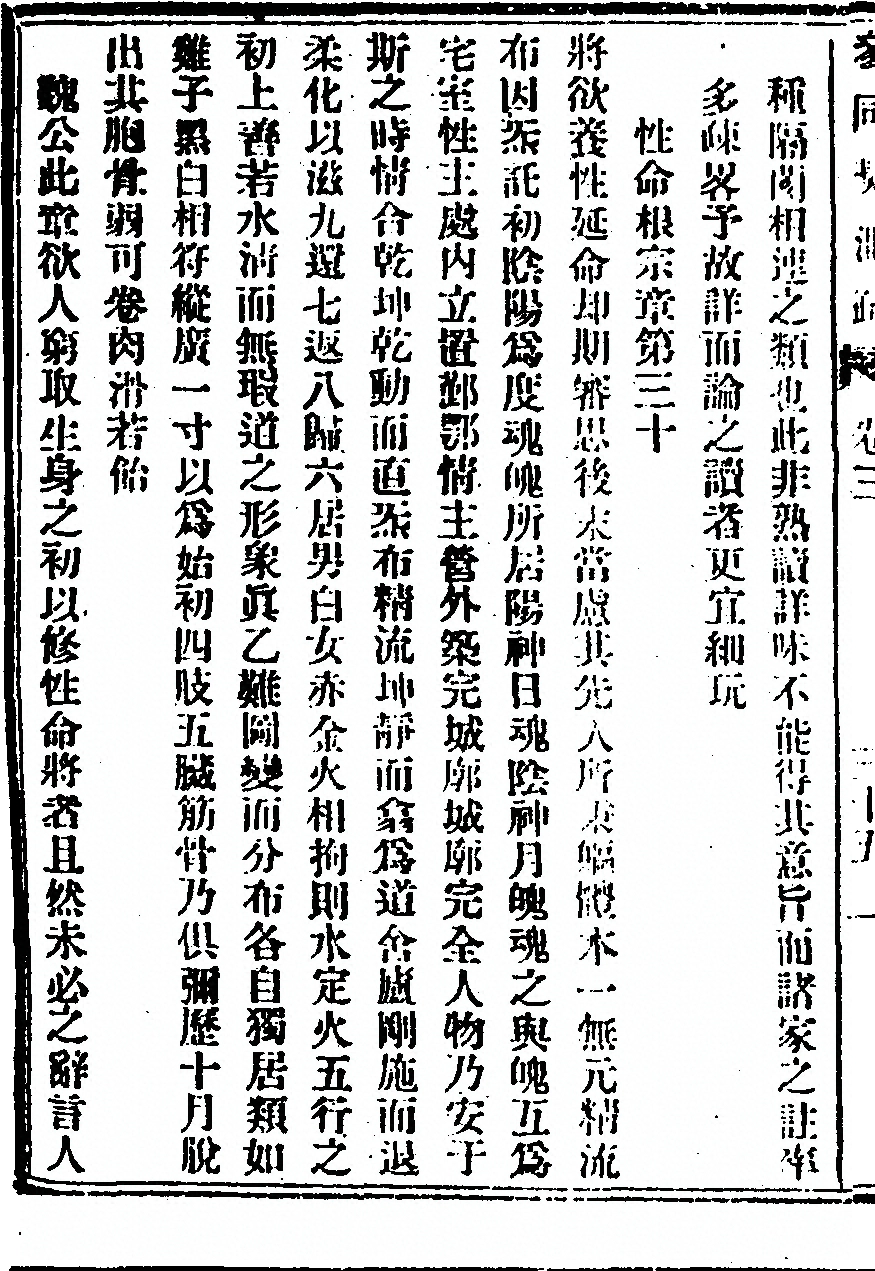 種隔閡相連之類也此非熟讀詳味不能得其意旨而諸家之註率
多疎畧予故詳而論之讀者更宜細玩
性命根宗章第三十
將欲養性延命却期審思後末當慮其先人所秉軀體本一無元精流
布因炁託初陰陽爲度魂魄所居陽神日魂陰神月魄魂之與魄互爲
宅室性主處內立置鄞鄂情主營外築完城廓城廓完全人物乃安于
斯之時情合乾坤乾動而直炁布精流坤靜而翕爲道舍廬剛施而退
柔化以滋九還七返八歸六居男白女赤金火相拘則水定火五行之
初上善若水清而無瑕道之形象眞乙難圖變而分布各自獨居類如
雞子黑白相符縱廣一寸以爲始初四肢五臟筋骨乃俱彌歷十月脫
出其胞骨弱可卷肉滑若飴
魏公此章欲人窮取生身之初以修性命將者且然未必之辭言人
卷三
三十五